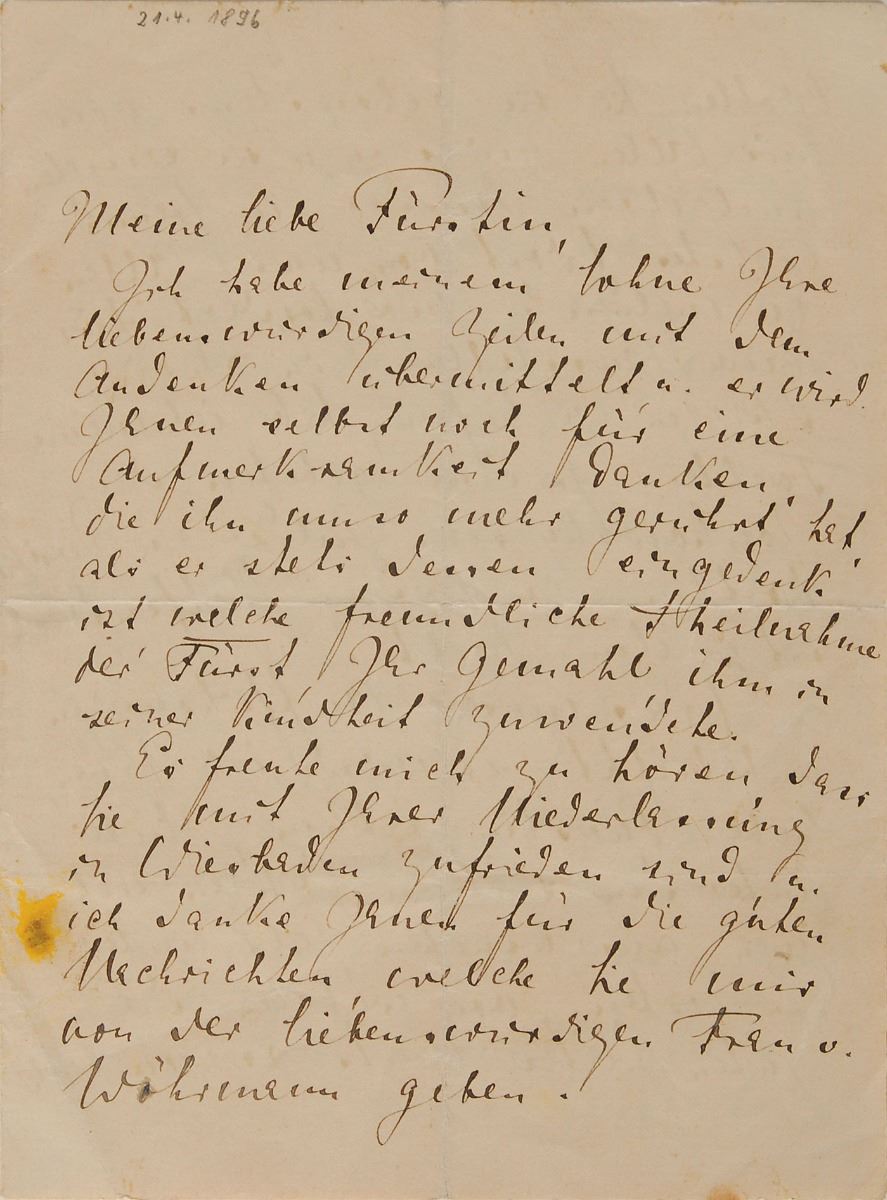 21.4. 1896
Meine liebe Fürstin,
Ich habe meinem Sohne Ihre
liebenswürdigen Zeilen mit dem
Andenken übermittelt u. er wird
Ihnen selbst noch für eine
Aufmerksamkeit danken,
die ihn umso mehr gerührt hat,
als er stets dessen eingedenk
ist welche freundliche Theilnahme
der Fürst, Ihr Gemahl, ihm in
seiner Kindheit zuwendete.
Es freute mich zu hören, dass
Sie mit Ihrer Niederlassung
in Wiesbaden zufrieden sind u.
ich danke Ihnen für die guten
Nachrichten, welche Sie mir
von der liebenswürdigen Frau v.
Wöhrmann geben.